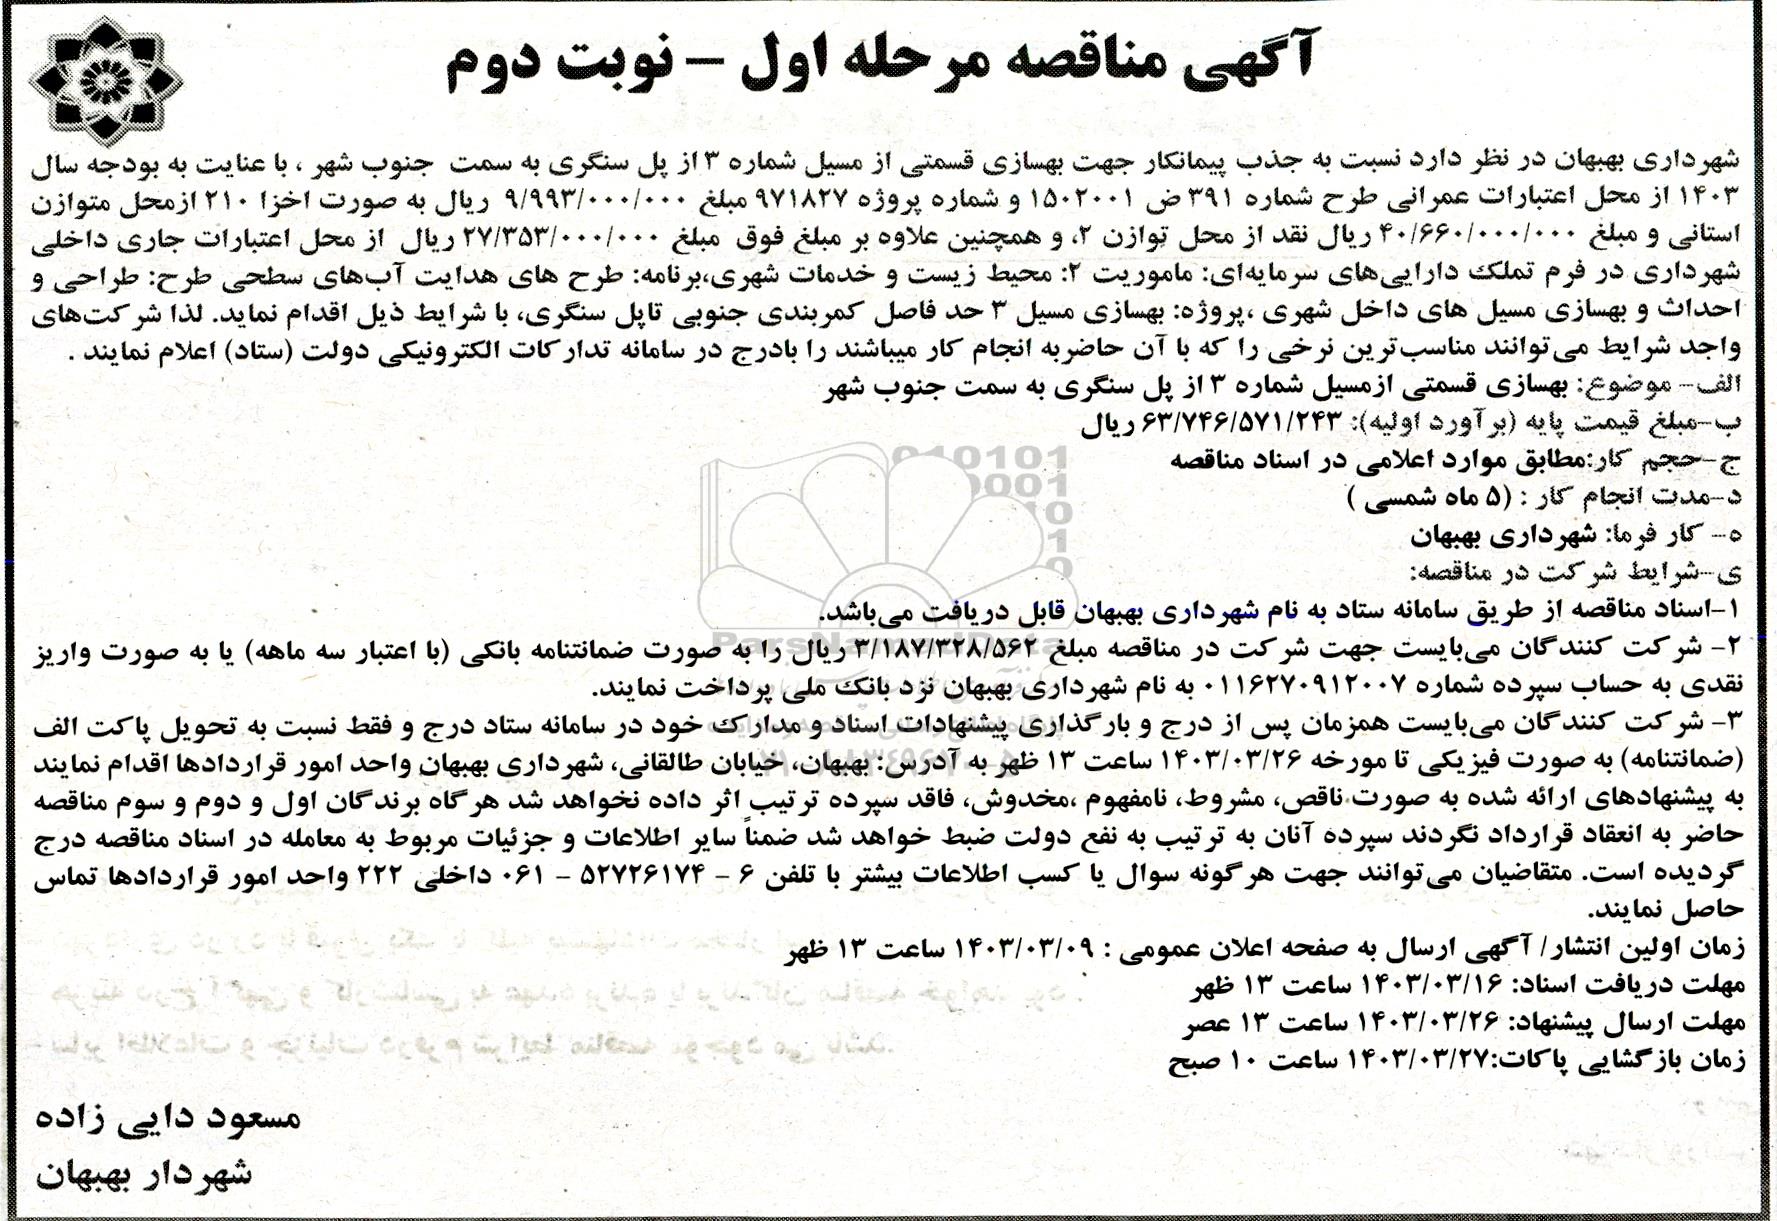 آگهی مناقصه مرحله اول – نوبت دوم
شهرداری بهبهان در نظر دارد نسبت به جذب پیمانکار جهت بهسازی قسمتی از مسیل شماره ۳ از پل سنگری به سمت جنوب شهر ، با عنایت به بودجه سال
۱۴۰۳ از محل اعتبارات عمرانی طرح شماره ۳۹۱ ض ۱۵۰۲۰۰۱ و شماره پروژه ۹۷۱۸۲۷ مبلغ ۹/۹۹۳/۰۰۰/۰۰۰ ریال به صورت اخزا ۲۱۰ ازمحل متوازن
استانی و مبلغ ۴۰/۶۶۰/۰۰۰/۰۰۰ ریال نقد از محل توازن ۲، و همچنین علاوه بر مبلغ فوق مبلغ ۲۷/۳۵۳/۰۰۰/۰۰۰ ریال از محل اعتبارات جاری داخلی
شهرداری در فرم تملک دارایی‌های سرمایه‌ای: ماموریت ۲: محیط زیست و خدمات شهری،برنامه: طرح های هدایت آب‌های سطحی طرح: طراحی و
احداث و بهسازی مسیل های داخل شهری ،پروژه: بهسازی مسیل ۳ حد فاصل کمربندی جنوبی تاپل سنگری، با شرایط ذیل اقدام نماید. لذا شرکت‌های
واجد شرایط می‌توانند مناسب‌ترین نرخی را که با آن حاضربه انجام کار میباشند را بادرج در سامانه تدارکات الکترونیکی دولت (ستاد) اعلام نمایند .
الف- موضوع: بهسازی قسمتی ازمسیل شماره ۳ از پل سنگری به سمت جنوب شهر
ب-مبلغ قیمت پایه (برآورد اولیه): ۶۳/۷۴۶/۵۷۱/۲۴۳ ریال
ج-حجم کار:مطابق موارد اعلامی در اسناد مناقصه
د-مدت انجام کار : (۵ ماه شمسی )
ه- کار فرما: شهرداری بهبهان
ی-شرایط شرکت در مناقصه:
۱-اسناد مناقصه از طریق سامانه ستاد به نام شهرداری بهبهان قابل دریافت می‌باشد.
۲- شرکت کنندگان می‌بایست جهت شرکت در مناقصه مبلغ ۳/۱۸۷/۳۲۸/۵۶۲ ریال را به صورت ضمانتنامه بانکی (با اعتبار سه ماهه) یا به صورت واریز
نقدی به حساب سپرده شماره ۰۱۱۶۲۷۰۹۱۲۰۰۷ به نام شهرداری بهبهان نزد بانک ملی پرداخت نمایند.
۳- شرکت کنندگان می‌بایست همزمان پس از درج و بارگذاری پیشنهادات اسناد و مدارک خود در سامانه ستاد درج و فقط نسبت به تحویل پاکت الف
(ضمانتنامه) به صورت فیزیکی تا مورخه ۱۴۰۳/۰۳/۲۶ ساعت ۱۳ ظهر به آدرس: بهبهان، خیابان طالقانی، شهرداری بهبهان واحد امور قراردادها اقدام نمایند
به پیشنهادهای ارائه شده به صورت ناقص، مشروط، نامفهوم ،مخدوش، فاقد سپرده ترتیب اثر داده نخواهد شد هرگاه برندگان اول و دوم و سوم مناقصه
حاضر به انعقاد قرارداد نگردند سپرده آنان به ترتیب به نفع دولت ضبط خواهد شد ضمناً سایر اطلاعات و جزئیات مربوط به معامله در اسناد مناقصه درج
گردیده است. متقاضیان می‌توانند جهت هرگونه سوال یا کسب اطلاعات بیشتر با تلفن ۶ - ۵۲۷۲۶۱۷۴ - ۰۶۱ داخلی ۲۲۲ واحد امور قراردادها تماس
حاصل نمایند.
زمان اولین انتشار/ آگهی ارسال به صفحه اعلان عمومی : ۱۴۰۳/۰۳/۰۹ ساعت ۱۳ ظهر
مهلت دریافت اسناد: ۱۴۰۳/۰۳/۱۶ ساعت ۱۳ ظهر
مهلت ارسال پیشنهاد: ۱۴۰۳/۰۳/۲۶ ساعت ۱۳ عصر
زمان بازگشایی پاکات:۱۴۰۳/۰۳/۲۷ ساعت ۱۰ صبح
مسعود دایی زاده
شهردار بهبهان